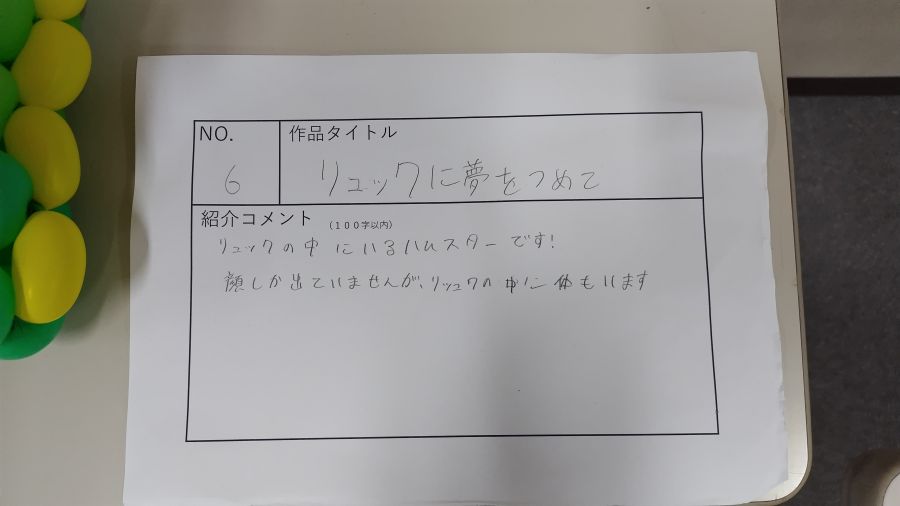 NO.
作品タイトル
6
リュックに夢をつめて
紹介コメント (100字以内)
リュックの中にいるハムスターです!
顔しか出ていませんが、リッュクの中に体もいます